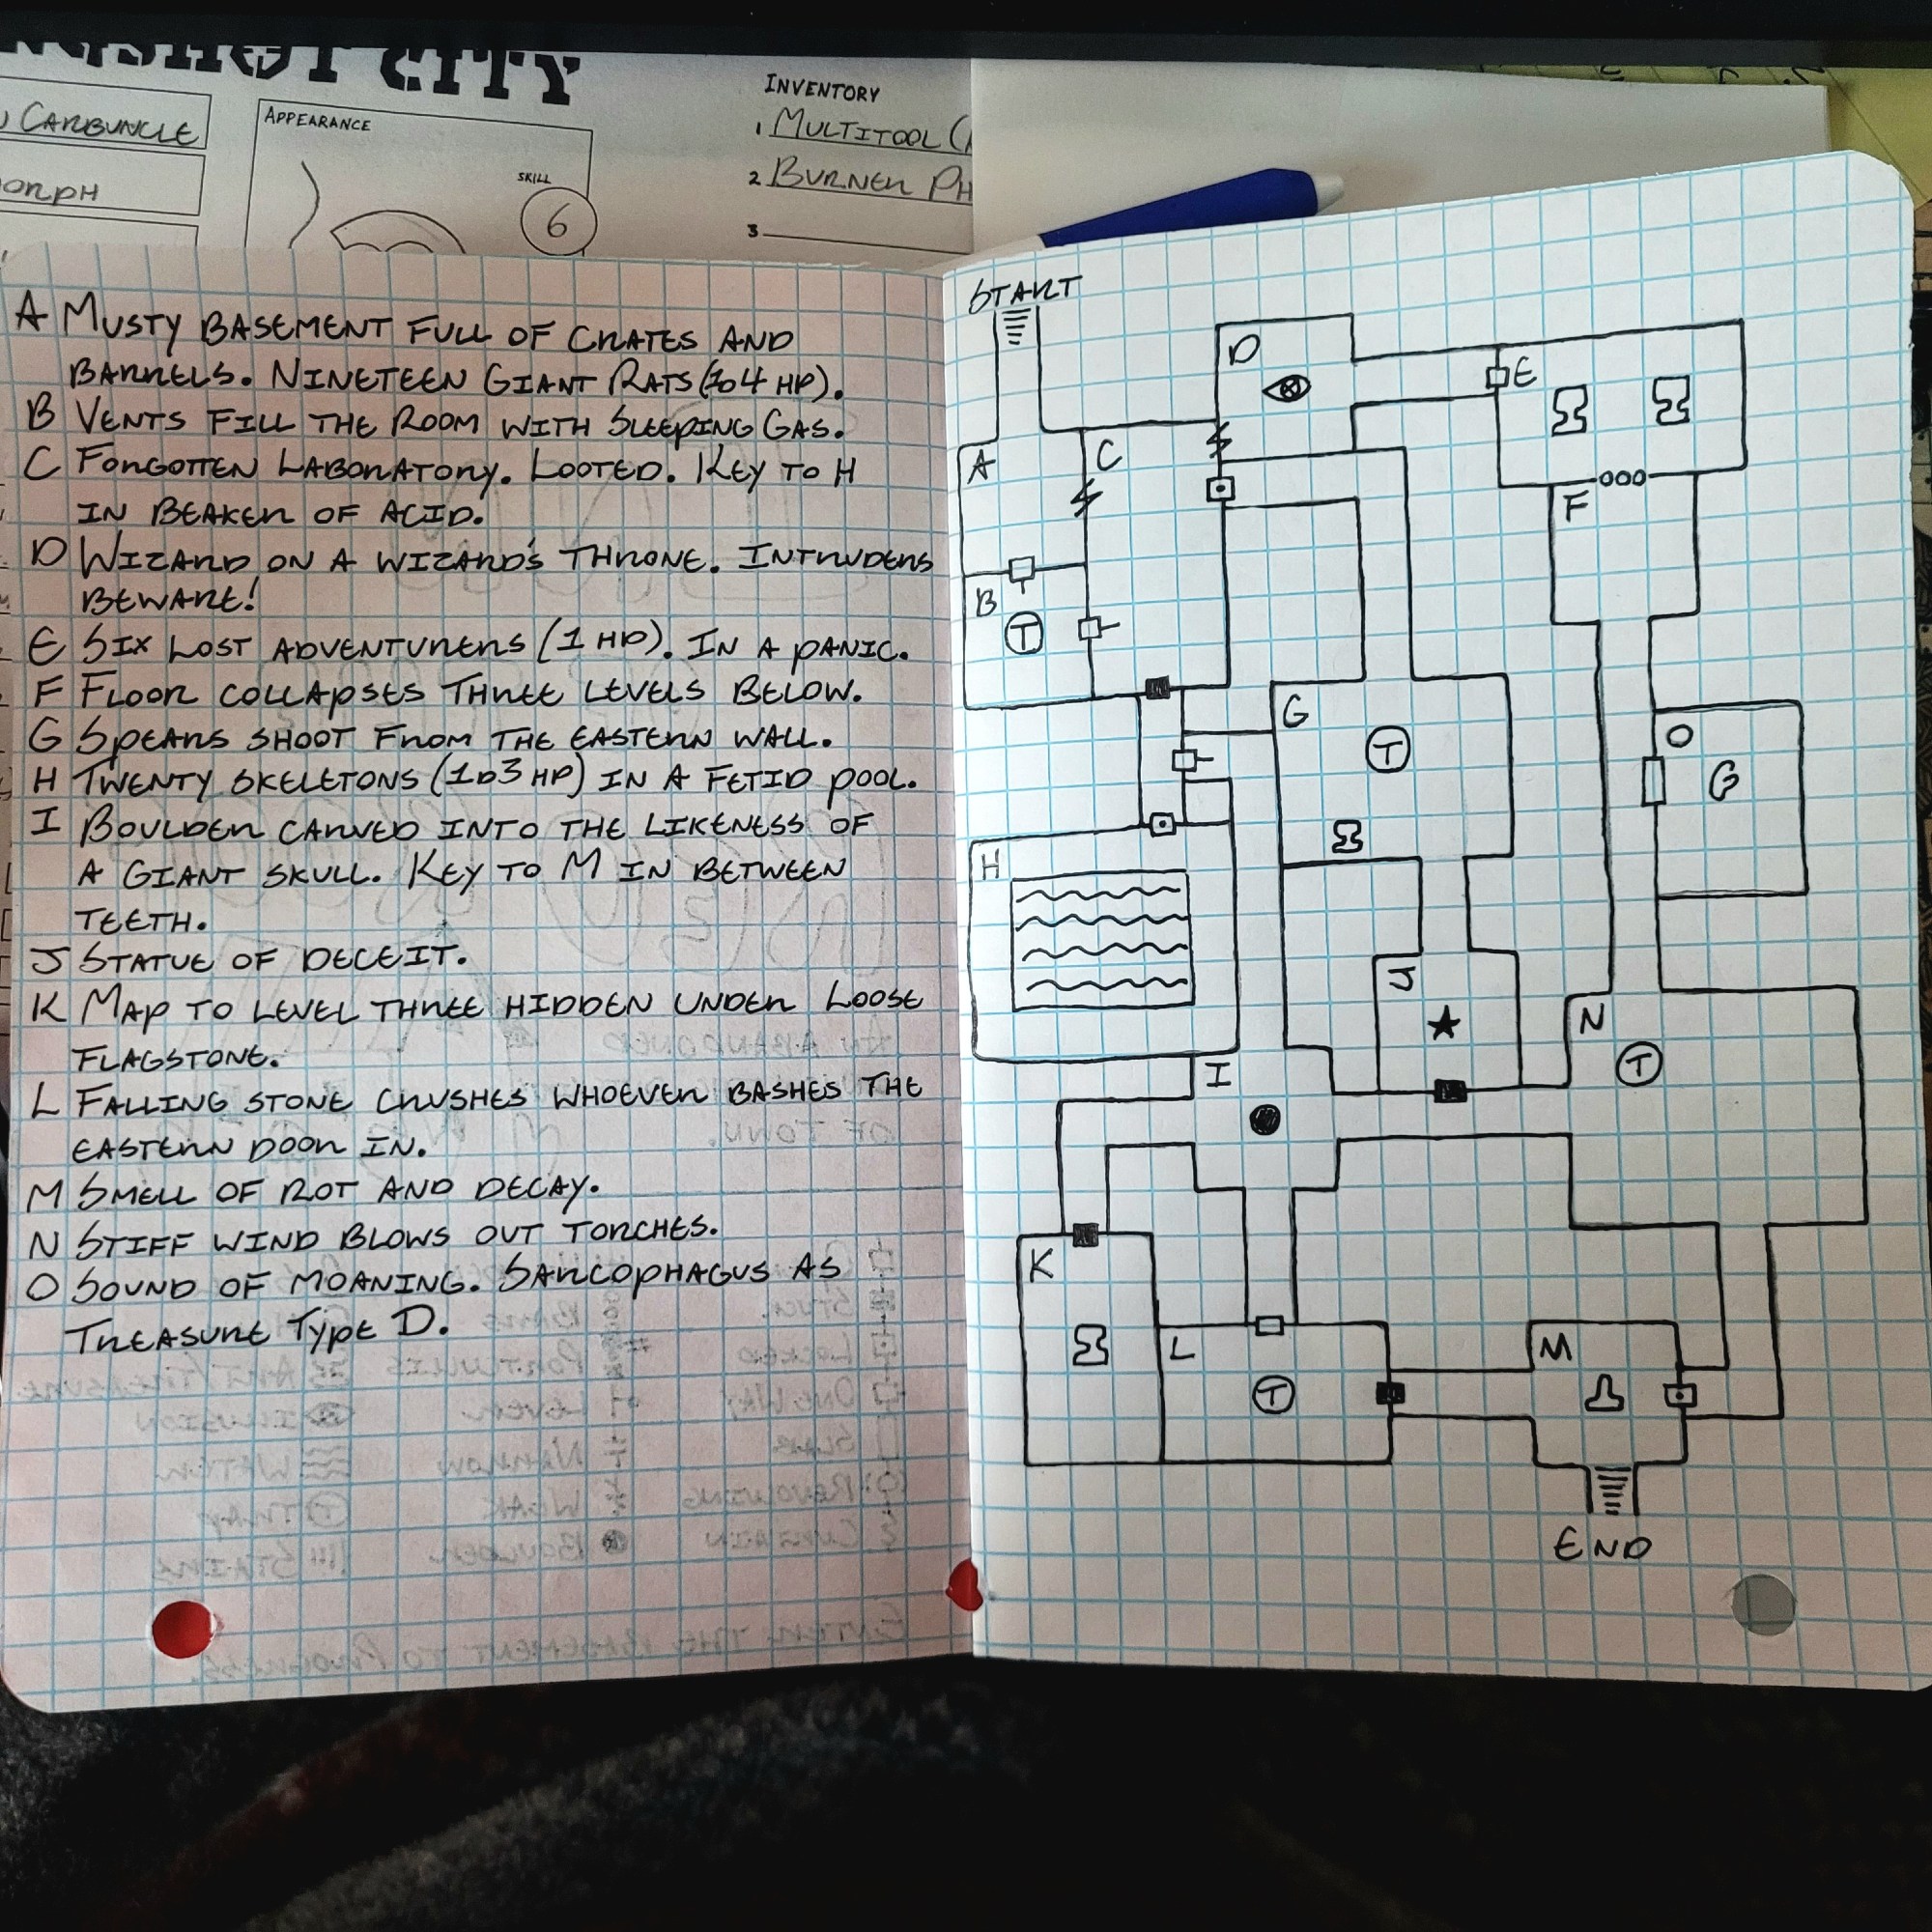 CITY
CARBUNCLE
APPEARANCE
SKILL
6
INVENTORY
1 MULTITOOL (
2 BURNER PH
3
A MUSTY BASEMENT FULL OF CRATES AND
BARRELS. NINETEEN GIANT RATS (1D4 HP).
B VENTS FILL THE ROOM WITH SLEEPING GAS.
C FORGOTTEN LABORATORY. LOOTED. KEY TO H
IN BEAKER OF ACID.
D WIZARD ON A WIZARD'S THRONE. INTRUDERS
BEWARE!
E SIX LOST ADVENTURERS (1 HD). IN A PANIC.
F FLOOR COLLAPSES THREE LEVELS BELOW.
G SPEARS SHOOT FROM THE EASTERN WALL.
H TWENTY SKELETONS (1D3 HP) IN A FETID POOL.
I BOULDER CARVED INTO THE LIKENESS OF
A GIANT SKULL. KEY TO M IN BETWEEN
TEETH.
J STATUE OF DECEIT.
K MAP TO LEVEL THREE HIDDEN UNDER LOOSE
FLAGSTONE.
L FALLING STONE CRUSHES WHOEVER BASHES THE
EASTERN DOOR IN.
M SMELL OF ROT AND DECAY.
N STIFF WIND BLOWS OUT TORCHES.
O SOUND OF MOANING. SARCOPHAGUS AS
TREASURE TYPE D.
START
D
E
C
A
F
B
T
G
T
O
G
H
J
N
T
I
K
L
M
T
END